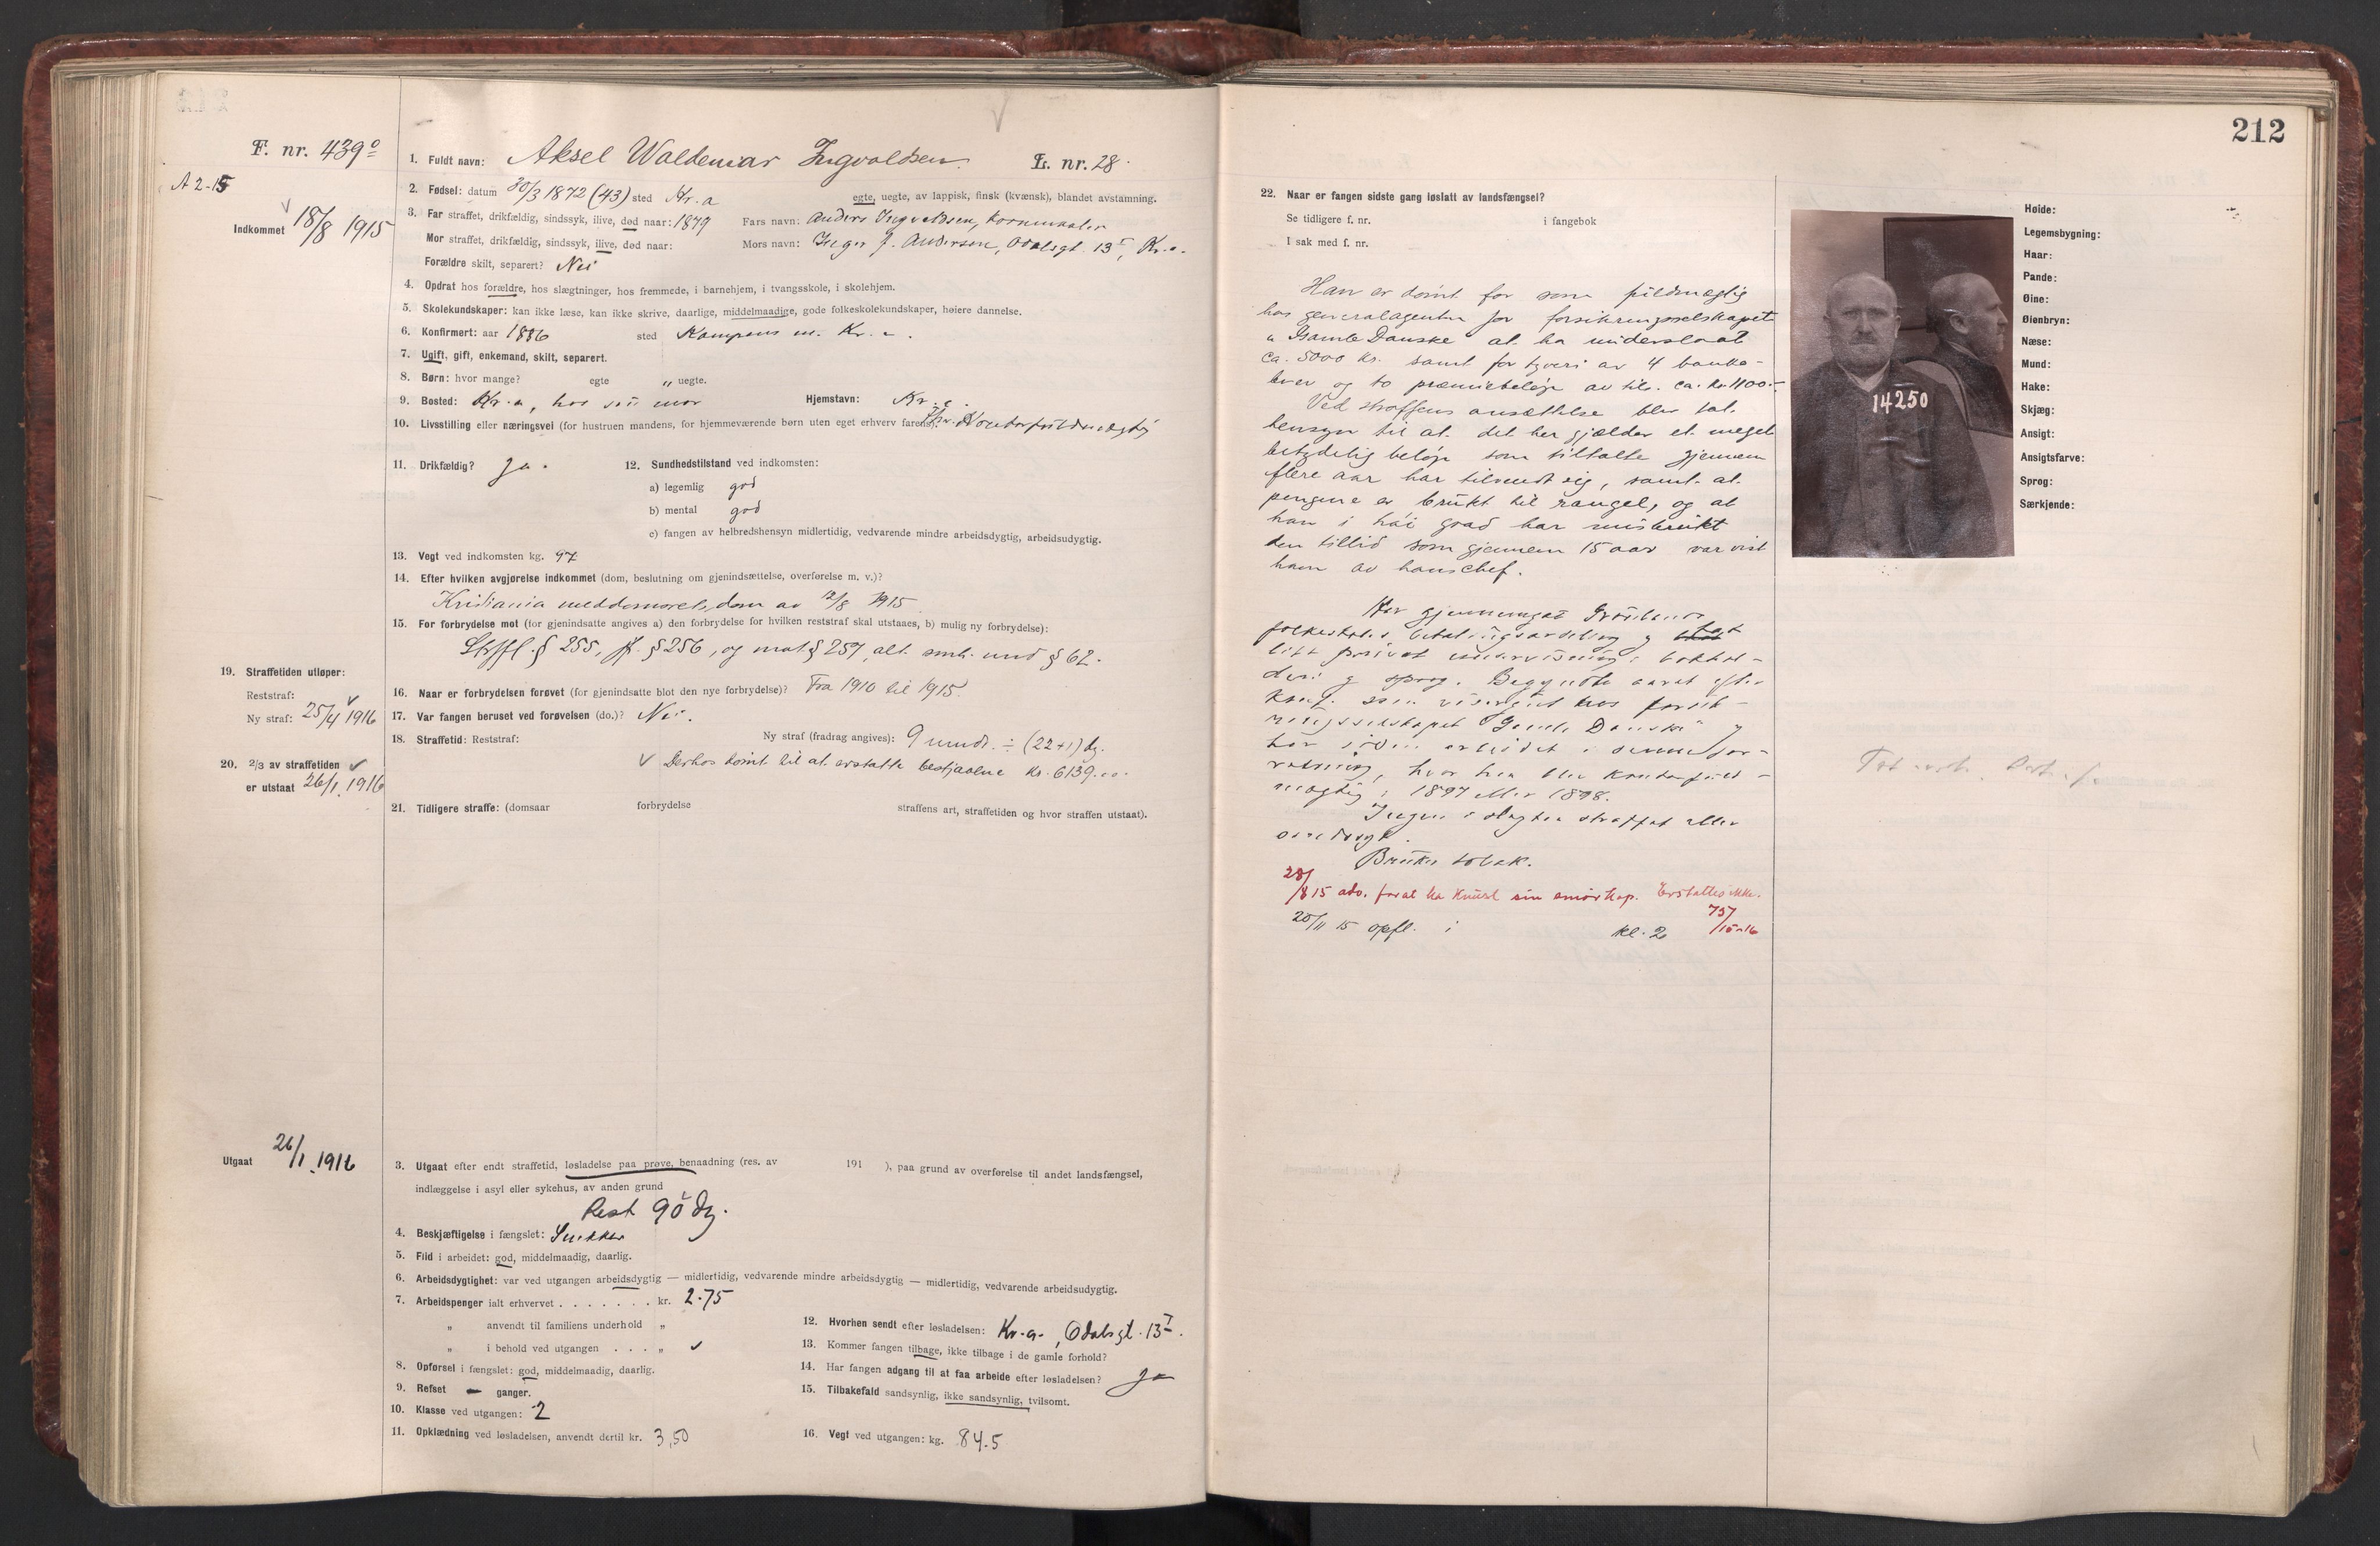 F. nr. 439º
A 2-15
Indkommet 18/8 1915
1. Fuldt navn: Aksel Waldemar Ingvaldsen. L. nr. 28.
2. Fødsel: datum 30/3 1872 (43) sted Kr.a egte, uegte, av lappisk, finsk (kvænsk), blandet avstamning.
3. Far straffet, drikfældig, sindssyk, ilive, død naar: 1879 Fars navn: Anders Ingvaldsen, Kornmaaler
Mor straffet, drikfældig, sindssyk, ilive, død naar: Mors navn: Inger J. Anderson, Odalsgt. 13 I, Kr.a.
Forældre skilt, separert? Nei
4. Opdrat hos forældre, hos slægtninger, hos fremmede, i barnehjem, i tvangsskole, i skolehjem.
5. Skolekundskaper: kan ikke læse, kan ikke skrive, daarlige, middelmaadige, gode folkeskolekundskaper, høiere dannelse.
6. Konfirmert: aar 1886 sted Kampens m. Kr.a.
7. Ugift, gift, enkemand, skilt, separert.
8. Børn: hvor mange? egte „ uegte.
9. Bosted: Kr.a, hos sin mor Hjemstavn: Kr.a.
10. Livsstilling eller næringsvei (for hustruen mandens, for hjemmeværende børn uten eget erhverv farens): Kontorfuldmægtig
11. Drikfældig? Ja. 12. Sundhedstilstand ved indkomsten:
a) legemlig god
b) mental god
c) fangen av helbredshensyn midlertidig, vedvarende mindre arbeidsdygtig, arbeidsudygtig.
13. Vegt ved indkomsten kg. 97
14. Efter hvilken avgjørelse indkommet (dom, beslutning om gjenindsættelse, overførelse m. v.)?
Kristiania meddomsrets dom av 12/8 1915
15. For forbrydelse mot (for gjenindsatte angives a) den forbrydelse for hvilken reststraf skal utstaaes, b) mulig ny forbrydelse):
Strffl. § 255, jf. § 256, og mot § 257, alt smh. med § 62.
19. Straffetiden utløper:
Reststraf:
Ny straf: 25/4 1916
16. Naar er forbrydelsen forøvet (for gjenindsatte blot den nye forbrydelse)? Fra 1910 til 1915.
17. Var fangen beruset ved forøvelsen (do.)? Nei.
18. Straffetid: Reststraf: Ny straf (fradrag angives): 9 mndr. ÷ (22+1) dg.
Derhos dømt til at erstatte bestjaalne kr. 6139.00.
20. 2/3 av straffetiden
er utstaat 26/1 1916
21. Tidligere straffe: (domsaar forbrydelse straffens art, straffetiden og hvor straffen utstaat).
Utgaat 26/1 1916
3. Utgaat efter endt straffetid, løsladelse paa prøve, benaadning (res. av 191 ), paa grund av overførelse til andet landsfængsel,
indlæggelse i asyl eller sykehus, av anden grund
Rest 90 dg.
4. Beskjæftigelse i fængslet: Snekker
5. Flid i arbeidet: god, middelmaadig, daarlig.
6. Arbeidsdygtighet: var ved utgangen arbeidsdygtig — midlertidig, vedvarende mindre arbeidsdygtig — midlertidig, vedvarende arbeidsudygtig.
7. Arbeidspenger ialt erhvervet . . . . . . . kr. 2.75
„ anvendt til familiens underhold „
„ i behold ved utgangen . . . „
8. Opførsel i fængslet: god, middelmaadig, daarlig.
9. Refset — ganger.
10. Klasse ved utgangen: 2
11. Opklædning ved løsladelsen, anvendt dertil kr. 3,50
12. Hvorhen sendt efter løsladelsen: Kr.a., Odalsgt. 13 I.
13. Kommer fangen tilbage, ikke tilbage i de gamle forhold?
14. Har fangen adgang til at faa arbeide efter løsladelsen? Ja
15. Tilbakefald sandsynlig, ikke sandsynlig, tvilsomt.
16. Vegt ved utgangen: kg. 84.5
212
22. Naar er fangen sidste gang løslatt av landsfængsel?
Se tidligere f. nr. i fangebok
I sak med f. nr.
Han er dømt for som fuldmægtig
hos generalagenten for forsikringsselskapet
„Gamle Danske at ha underslaat
ca. 5000 kr. samt for tyveri av 4 banko-
brev og to præmiebeløp av til. ca. kr. 1100.-
Ved straffens ansættelse blev tat
hensyn til at det her gjælder et meget
betydelig beløp som tiltalte gjennem
flere aar har tilvendt sig, samt at
pengene er brukt til rangel, og at
han i høi grad har misbrukt
den tillid som gjennem 15 aar var vist
ham av hans chef.
Har gjennemgaat Grønlands
folkeskoles betalingsavdeling og tat
litt privat undervisning i bokhol-
deri og sprog. Begyndte aaret efter
konf. som visergut hos forsik-
ringsselskapet „Gamle Danske" og
har siden arbeidet i denne for-
retning, hvor han blev kontorfuld-
mægtig i 1897 eller 1898.
Ingen i slegten straffet eller
sindssyk.
Bruker tobak.
28/8 15 adv. for at ha knust sin smørkop. Erstattes ikke.
75/15-16
20/11 15 opfl. i kl. 2
14250
Høide:
Legemsbygning:
Haar:
Pande:
Øine:
Øienbryn:
Næse:
Mund:
Hake:
Skjæg:
Ansigt:
Ansigtsfarve:
Sprog:
Særkjende: